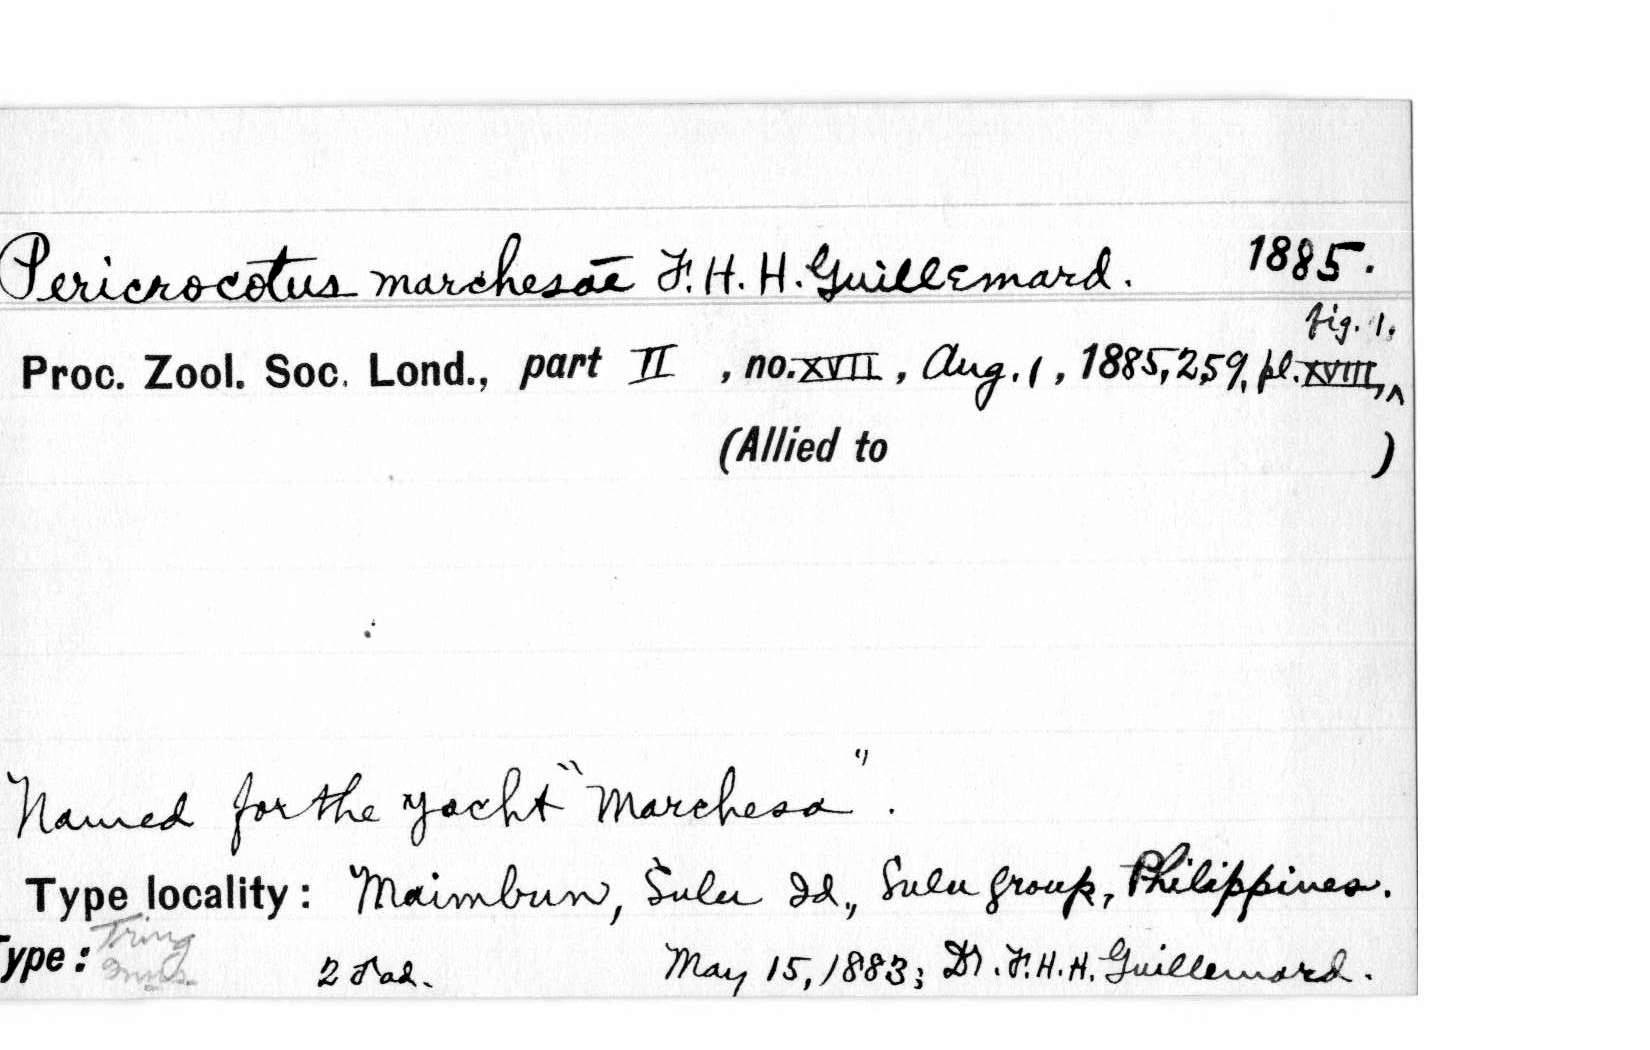 Pericrocotus marchesae F. H. H. Guillemard. 1885.
fig. 1,
Proc. Zool. Soc. Lond., part II, no. XVII, Aug. 1, 1885, 259, pl. XVIII, ^
(Allied to )
Named for the yacht "Marchesa".
Type locality: Maimbun, Sulu Id., Sulu group, Philippines.
Type: Tring Mus. 2 ♂ ad. May 15, 1883; Dr. F. H. H. Guillemard.